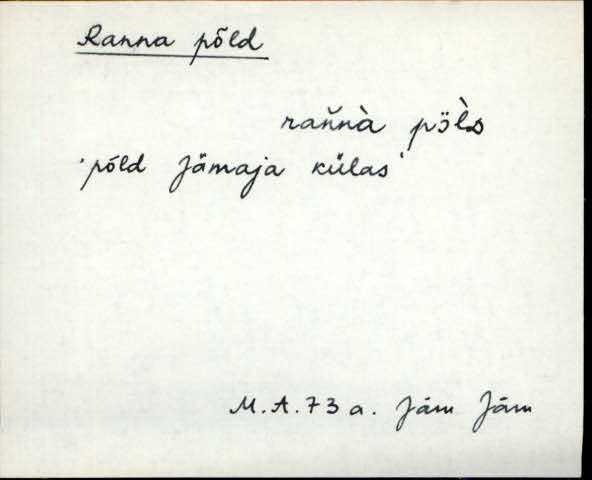 Ranna põld
rań̆nà pöl̀s
'põld Jämaja külas'
M.A.73 a. Jäm Jäm